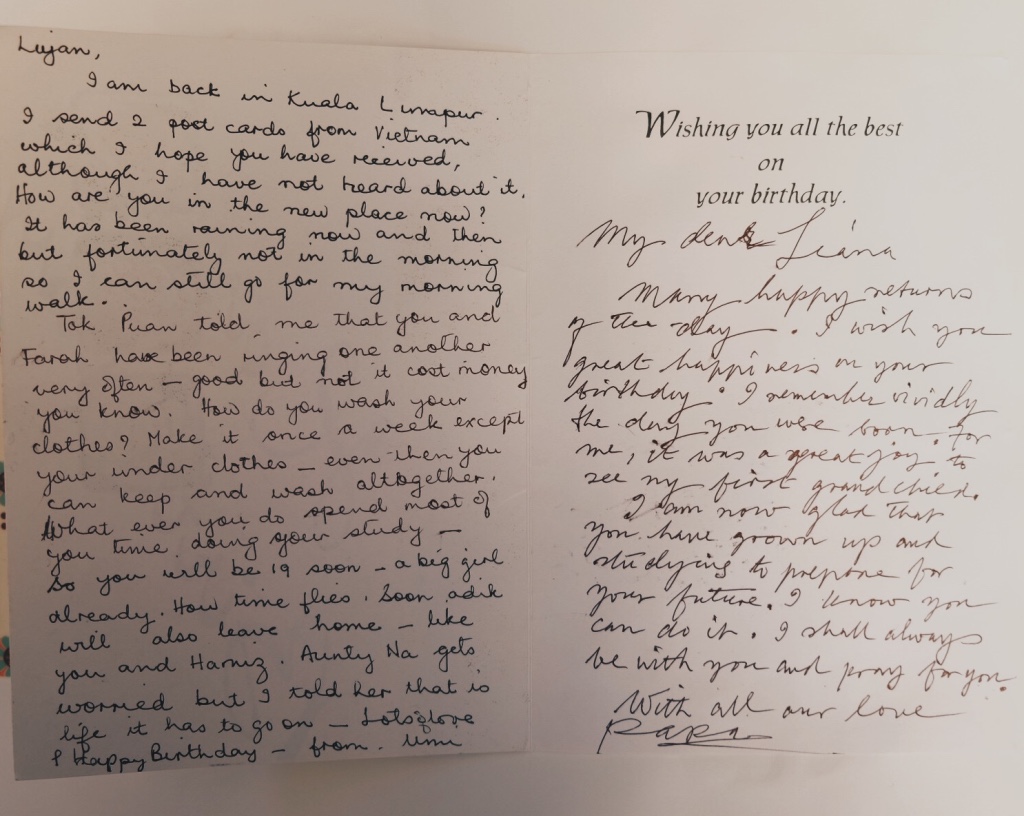 Lujan,
I am back in Kuala Lumapur.
I send 2 post cards from Vietnam
which I hope you have received,
although I have not heard about it.
How are you in the new place now?
It has been raining now and then
but fortunately not in the morning
so I can still go for my morning
walk..
Tok Puan told me that you and
Farah have been ringing one another
very often – good but not it cost money
you know. How do you wash your
clothes? Make it once a week except
your under clothes – even then you
can keep and wash altogether.
What ever you do spend most of
you time doing your study –
So you will be 19 soon – a big girl
already. How time flies. Soon adik
will also leave home – like
you and Hamiz. Aunty Na gets
worried but I told her that is
life it has to go on – Lots of love
& Happy Birthday – from. Umi
Wishing you all the best
on
your birthday.
My dear Liana
Many happy returns
of the day. I wish you
great happiness on your
birthday. I remember vividly
the day you were born. For
me, it was a great joy to
see my first grandchild.
I am now glad that
you have grown up and
studying to prepare for
your future. I know you
can do it. I shall always
be with you and pray for you.
With all our love
Papa